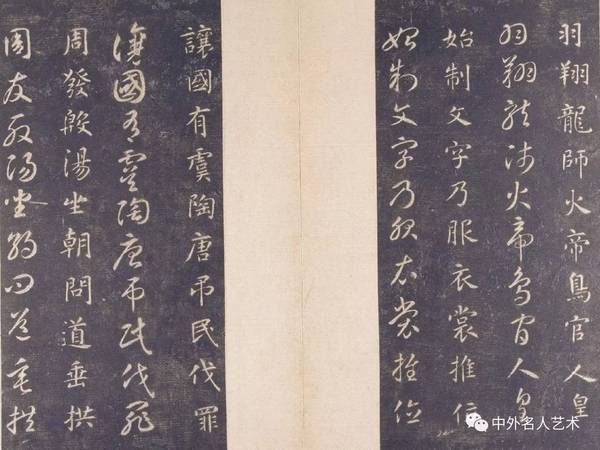 羽翔龍師火帝鳥官人皇
羽翔龍師火帝鳥官人皇
始制文字乃服衣裳推位
始制文字乃服衣裳推位
讓國有虞陶唐吊民伐罪
讓國有虞陶唐吊民伐罪
周發殷湯坐朝問道垂拱
周發殷湯坐朝問道垂拱
中外名人艺术